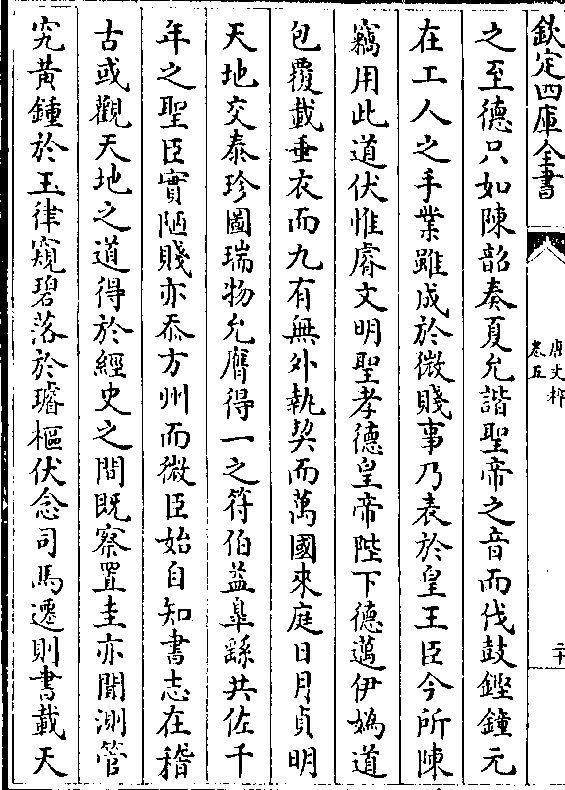 欽定四庫全書
唐文粹
卷五
二十
之至德只如陳韶奏夏允諧聖帝之音而伐鼓鏗鐘元
在工人之手業雖成於微賤事乃表於皇王臣今所陳
竊用此道伏惟睿文明聖孝德皇帝陛下德邁伊媯道
包覆載垂衣而九有無外執契而萬國來庭日月貞明
天地交泰珍圖瑞物允膺得一之符伯益臯繇共佐千
年之聖臣實陋賤亦忝方州而微臣始自知書志在稽
古或觀天地之道得於經史之間既察置圭亦聞測管
究黄鍾於玉律窺碧落於璿樞伏念司馬遷則書載天